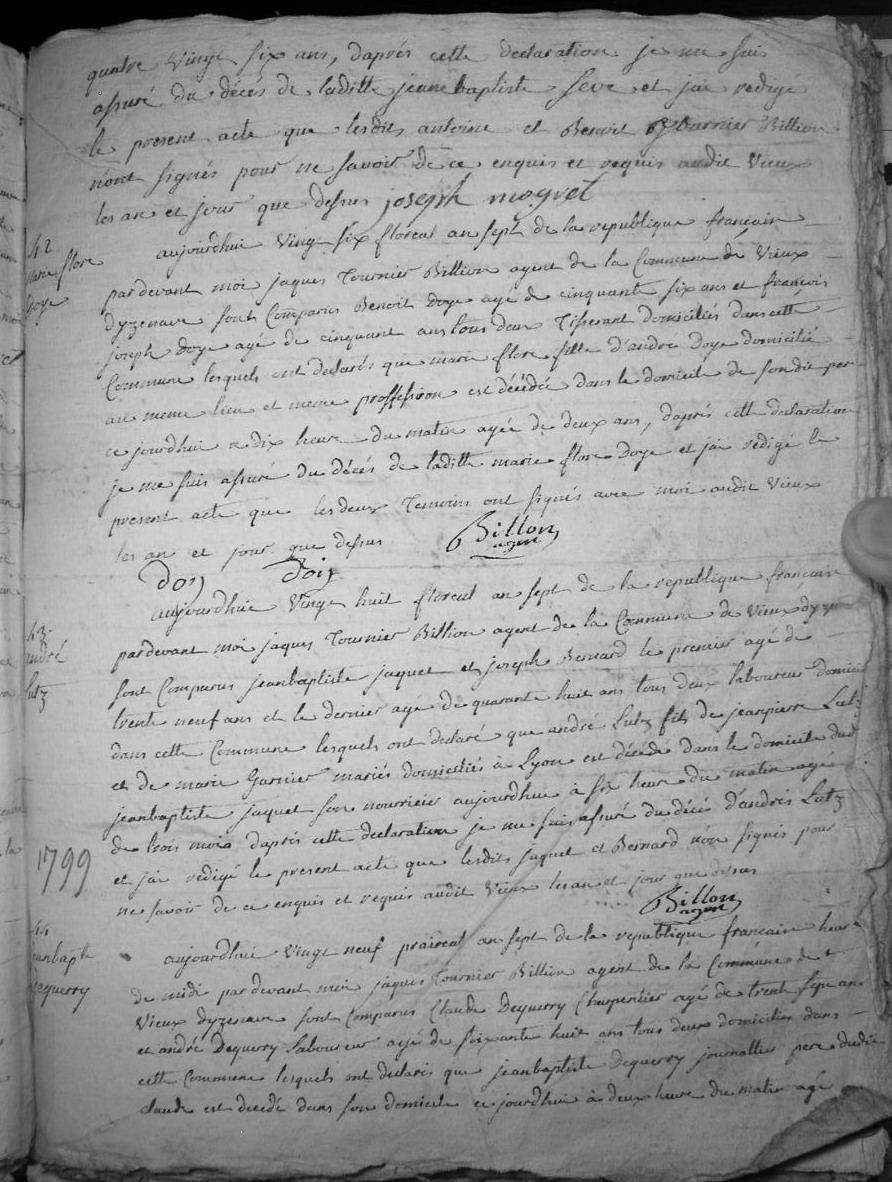 quatre Vingt six ans, daprés cette declaration je me suis
assuré du décés de laditte jeanne baptiste Seve et jai redigé
le present acte que lesdits antoine et Benoit Tournier Billion
n'ont signés pour ne savoir de ce enquis et requis audit Vieux
les an et jour que dessus joseph mogret
42
marie flore
Doye
aujourdhui Vingt six floreal an sept de la republique francaise
pardevant moi jaques Tournier Billion agent de la Commune de Vieux
dyzenave sont Comparus Benoit Doye agé de cinquante six ans et francois
joseph Doye agé de cinquant ans tous deux Tisserant domiciliés dans cette
Commune lesquels ont declarés que marie flore fille d'andré Doye domicilié
au meme lieu et meme proffession est décédée dans le domicile de son dit per
ce jourdhui a dix heure du matin agée de deux ans, daprés cette declaration
je me suis assuré du décés de laditte marie flore Doye et jai rédigé le
present acte que les deux Temoins ont signés avec moi audit Vieux
les an et jour que dessus Billon
agent
Doy Doiz
43.
andré
Lutz
aujourdhui Vingt huit floreal an sept de la republique francaise
pardevant moi jaques Tournier Billion agent de la Commune de Vieux dyze
sont Comparus jeanbaptiste jaquet et joseph Bernard le premier agé de
trente neuf ans et le dernier agé de quarante huit ans tous deux laboureur domici
dans cette Commune lesquels ont declaré que andré Lutz fils de jeanpierre Lutz
et de marie Garnier mariés domiciliés à Lyon est décédé dans le domicile dud
jeanbaptiste jaquet son nourricier aujourdhui à six heure du matin agé
de trois mois daprés cette declaration je me suis assuré du décés d'andrés Lutz
et jai redigé le present acte que lesdits jaquet et Bernard n'on signés pour
ne savoir de ce enquis et requis audit Vieux les an et jour que dessus
1799
Billon
agent
44
jeanbapte
Dequerry
aujourdhui Vingt neuf praireal an sept de la republique francaise heure
de midi pardevant moi jaques Tournier Billion agent de la Commune de
Vieux dyzenave sont Comparus Claude Dequerry Charpentier agé de trent sept ans
et andré Dequerry Laboureur agé de soixante huit ans tous deux domiciliés dans
cette Commune lesquels ont declarés que jeanbaptiste Dequerry journallier pere dudit
claude est decedé dans son domicile ce jourdhui à deux heure du matin agé